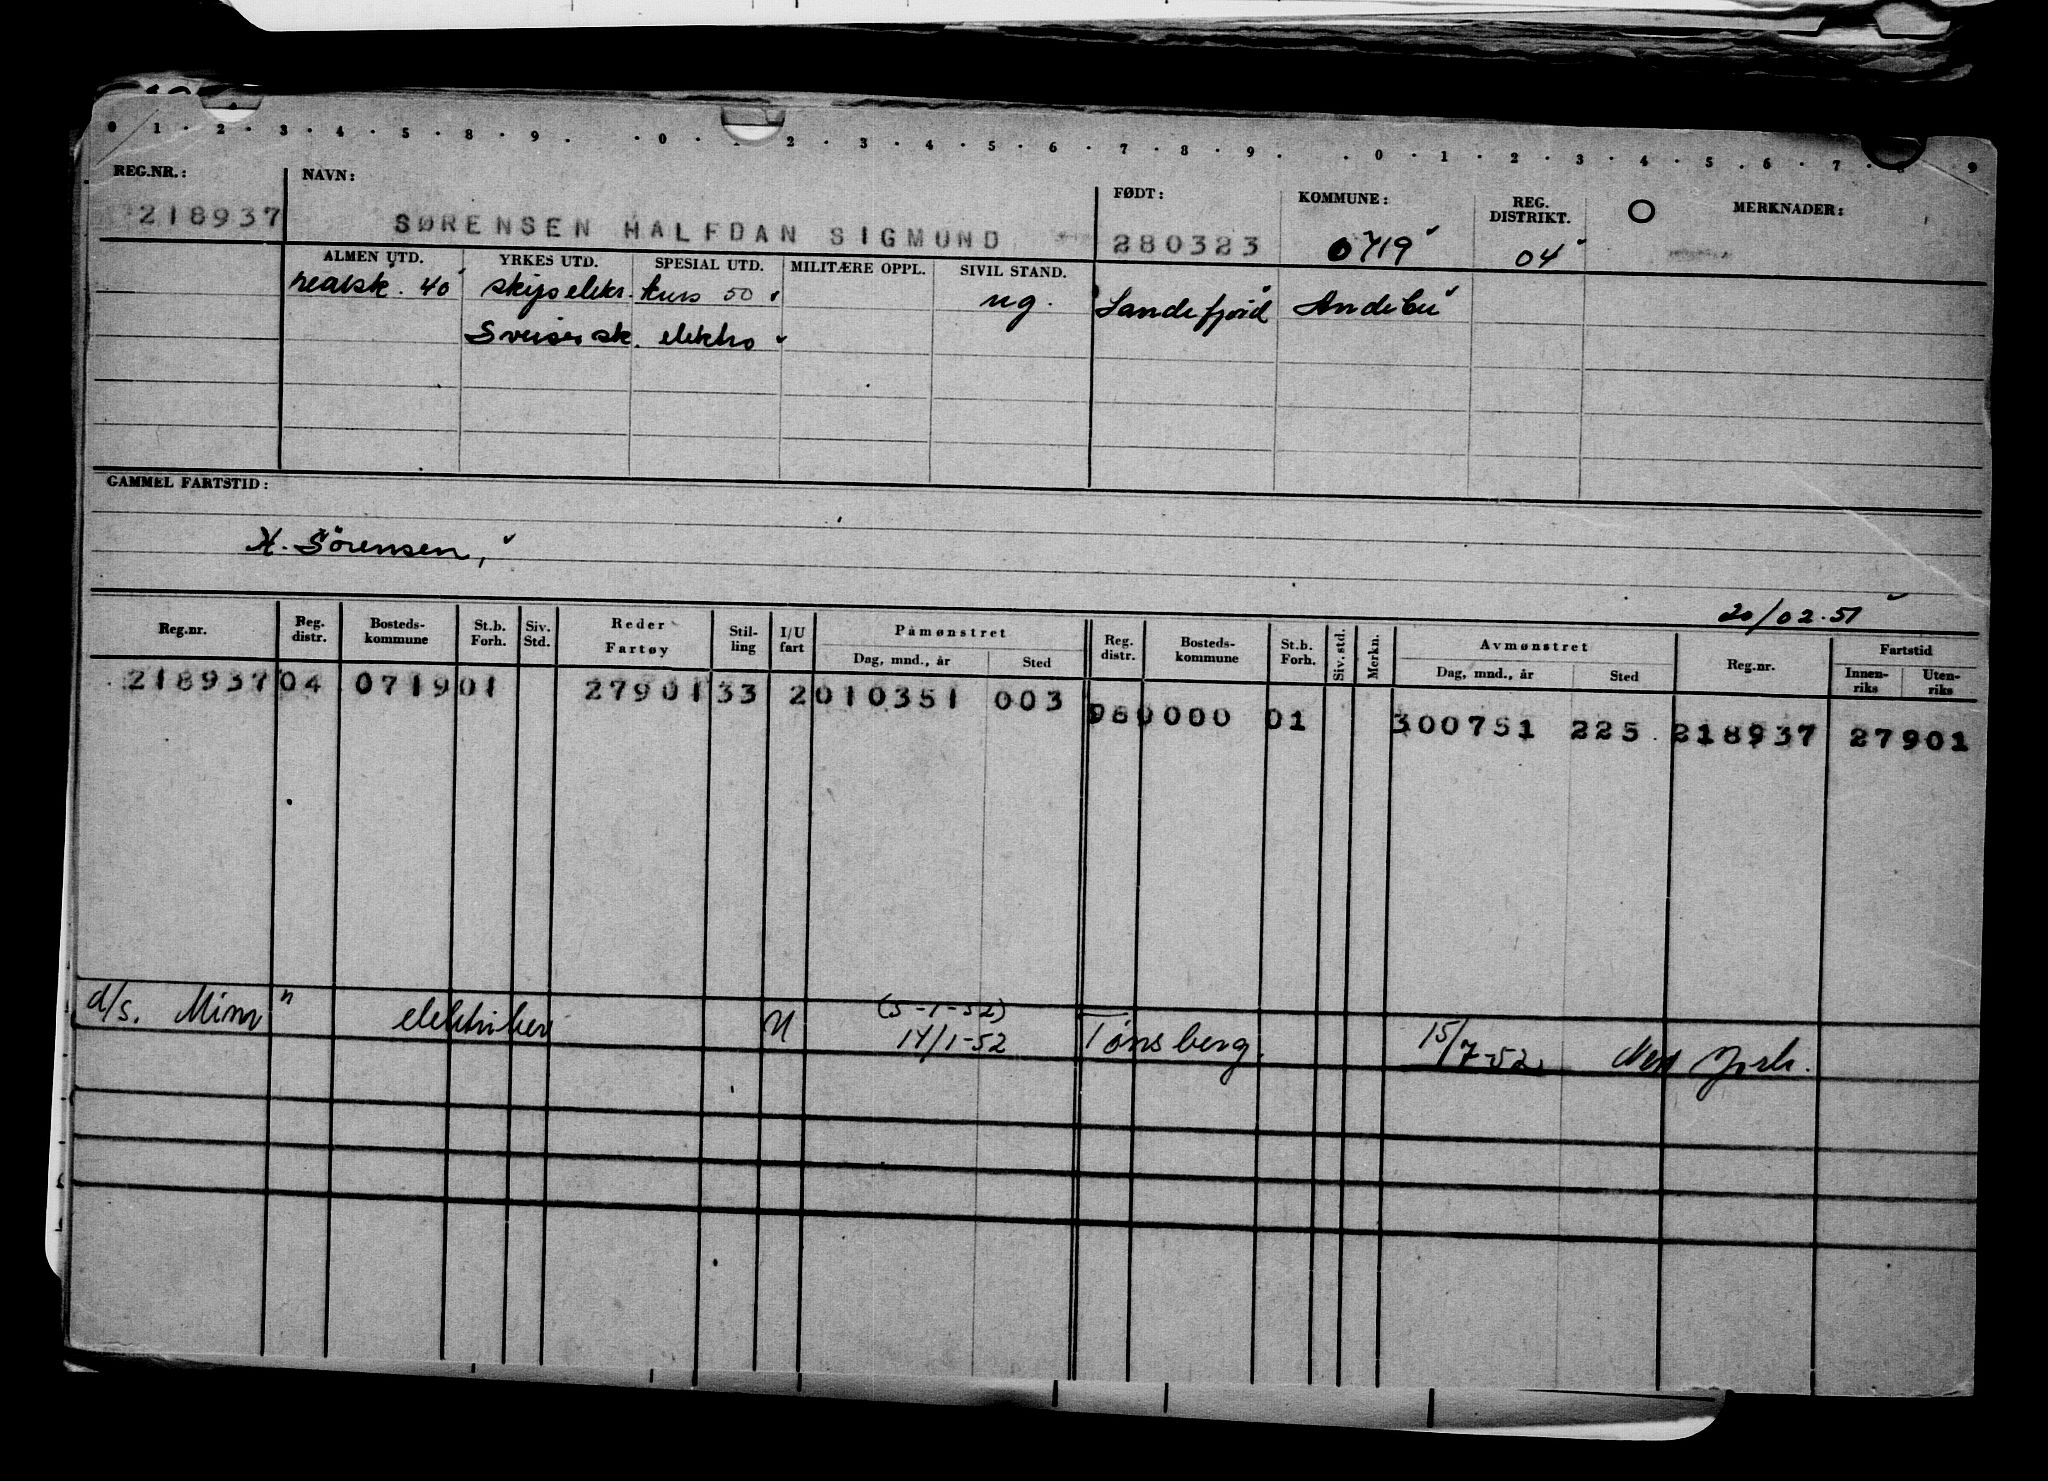 0 · 1 · 2 · 3 · 4 · 5 · 8 · 9 · · 0 · 2 · 3 · 4 · 5 · 6 · 7 · 8 · 9 · · 0 · 1 · 2 · 3 · 4 · 5 · 6 · 7 · 8 9
REG.NR.: NAVN: FØDT: KOMMUNE: REG. DISTRIKT. O MERKNADER:
218937 SØRENSEN HALFDAN SIGMUND 280323 0719 04
ALMEN UTD. YRKES UTD. SPESIAL UTD. MILITÆRE OPPL. SIVIL STAND.
realsk. 40 skipselektr. kurs 50 ug. Sandefjord Andebu
Sveisesk. elektro
GAMMEL FARTSTID:
H. Sörensen,
20/02.51
Reg.nr. Reg. distr. Bosteds-kommune St.b. Forh. Siv. Std. Reder Fartøy Stil-ling I/U fart Påmønstret Reg. distr. Bosteds-kommune St.b. Forh. Siv. std. Merkn. Avmønstret Reg.nr. Fartstid
Dag, mnd., år Sted Dag, mnd., år Sted Innen-riks Uten-riks
218937 04 0719 01 27901 33 2 010351 003 980000 01 300751 225 218937 27901
d/s. Mim" elektriker U (5-1-52) 14/1-52 Tønsberg. 15/7-52 New York.